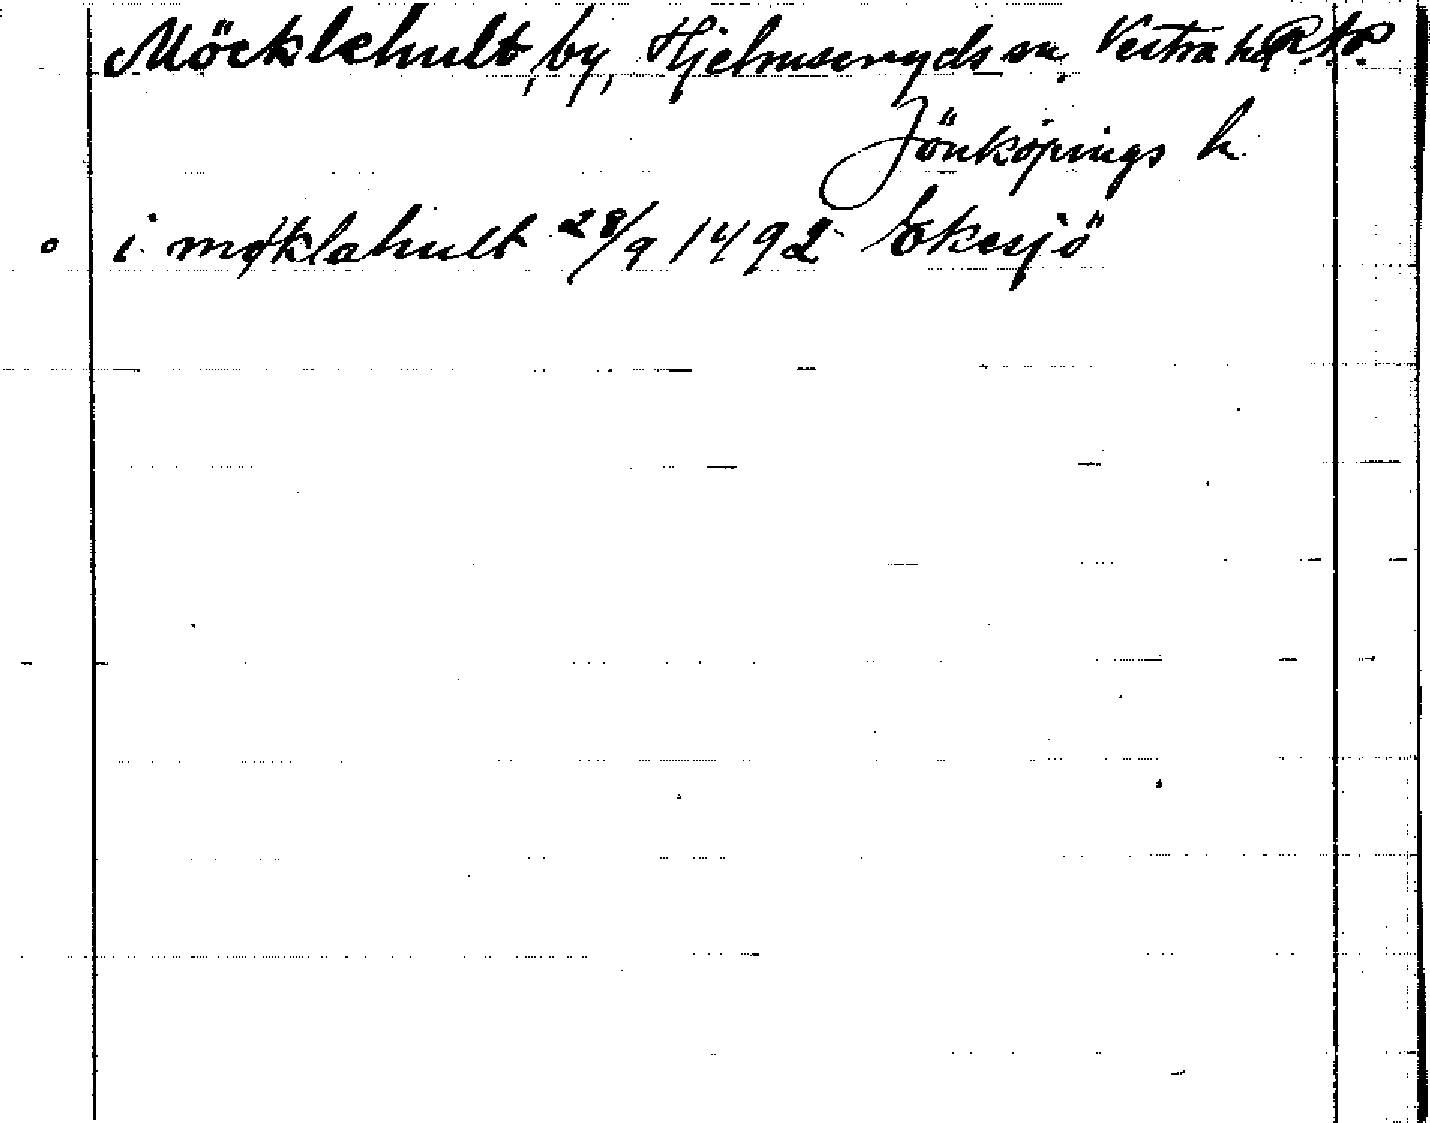 Möcklehult, by, Hjelmseryds sn, Vestra hd R.A.P.
Jönköpings l.
o i møklahult 28/9 1492 Eksjö